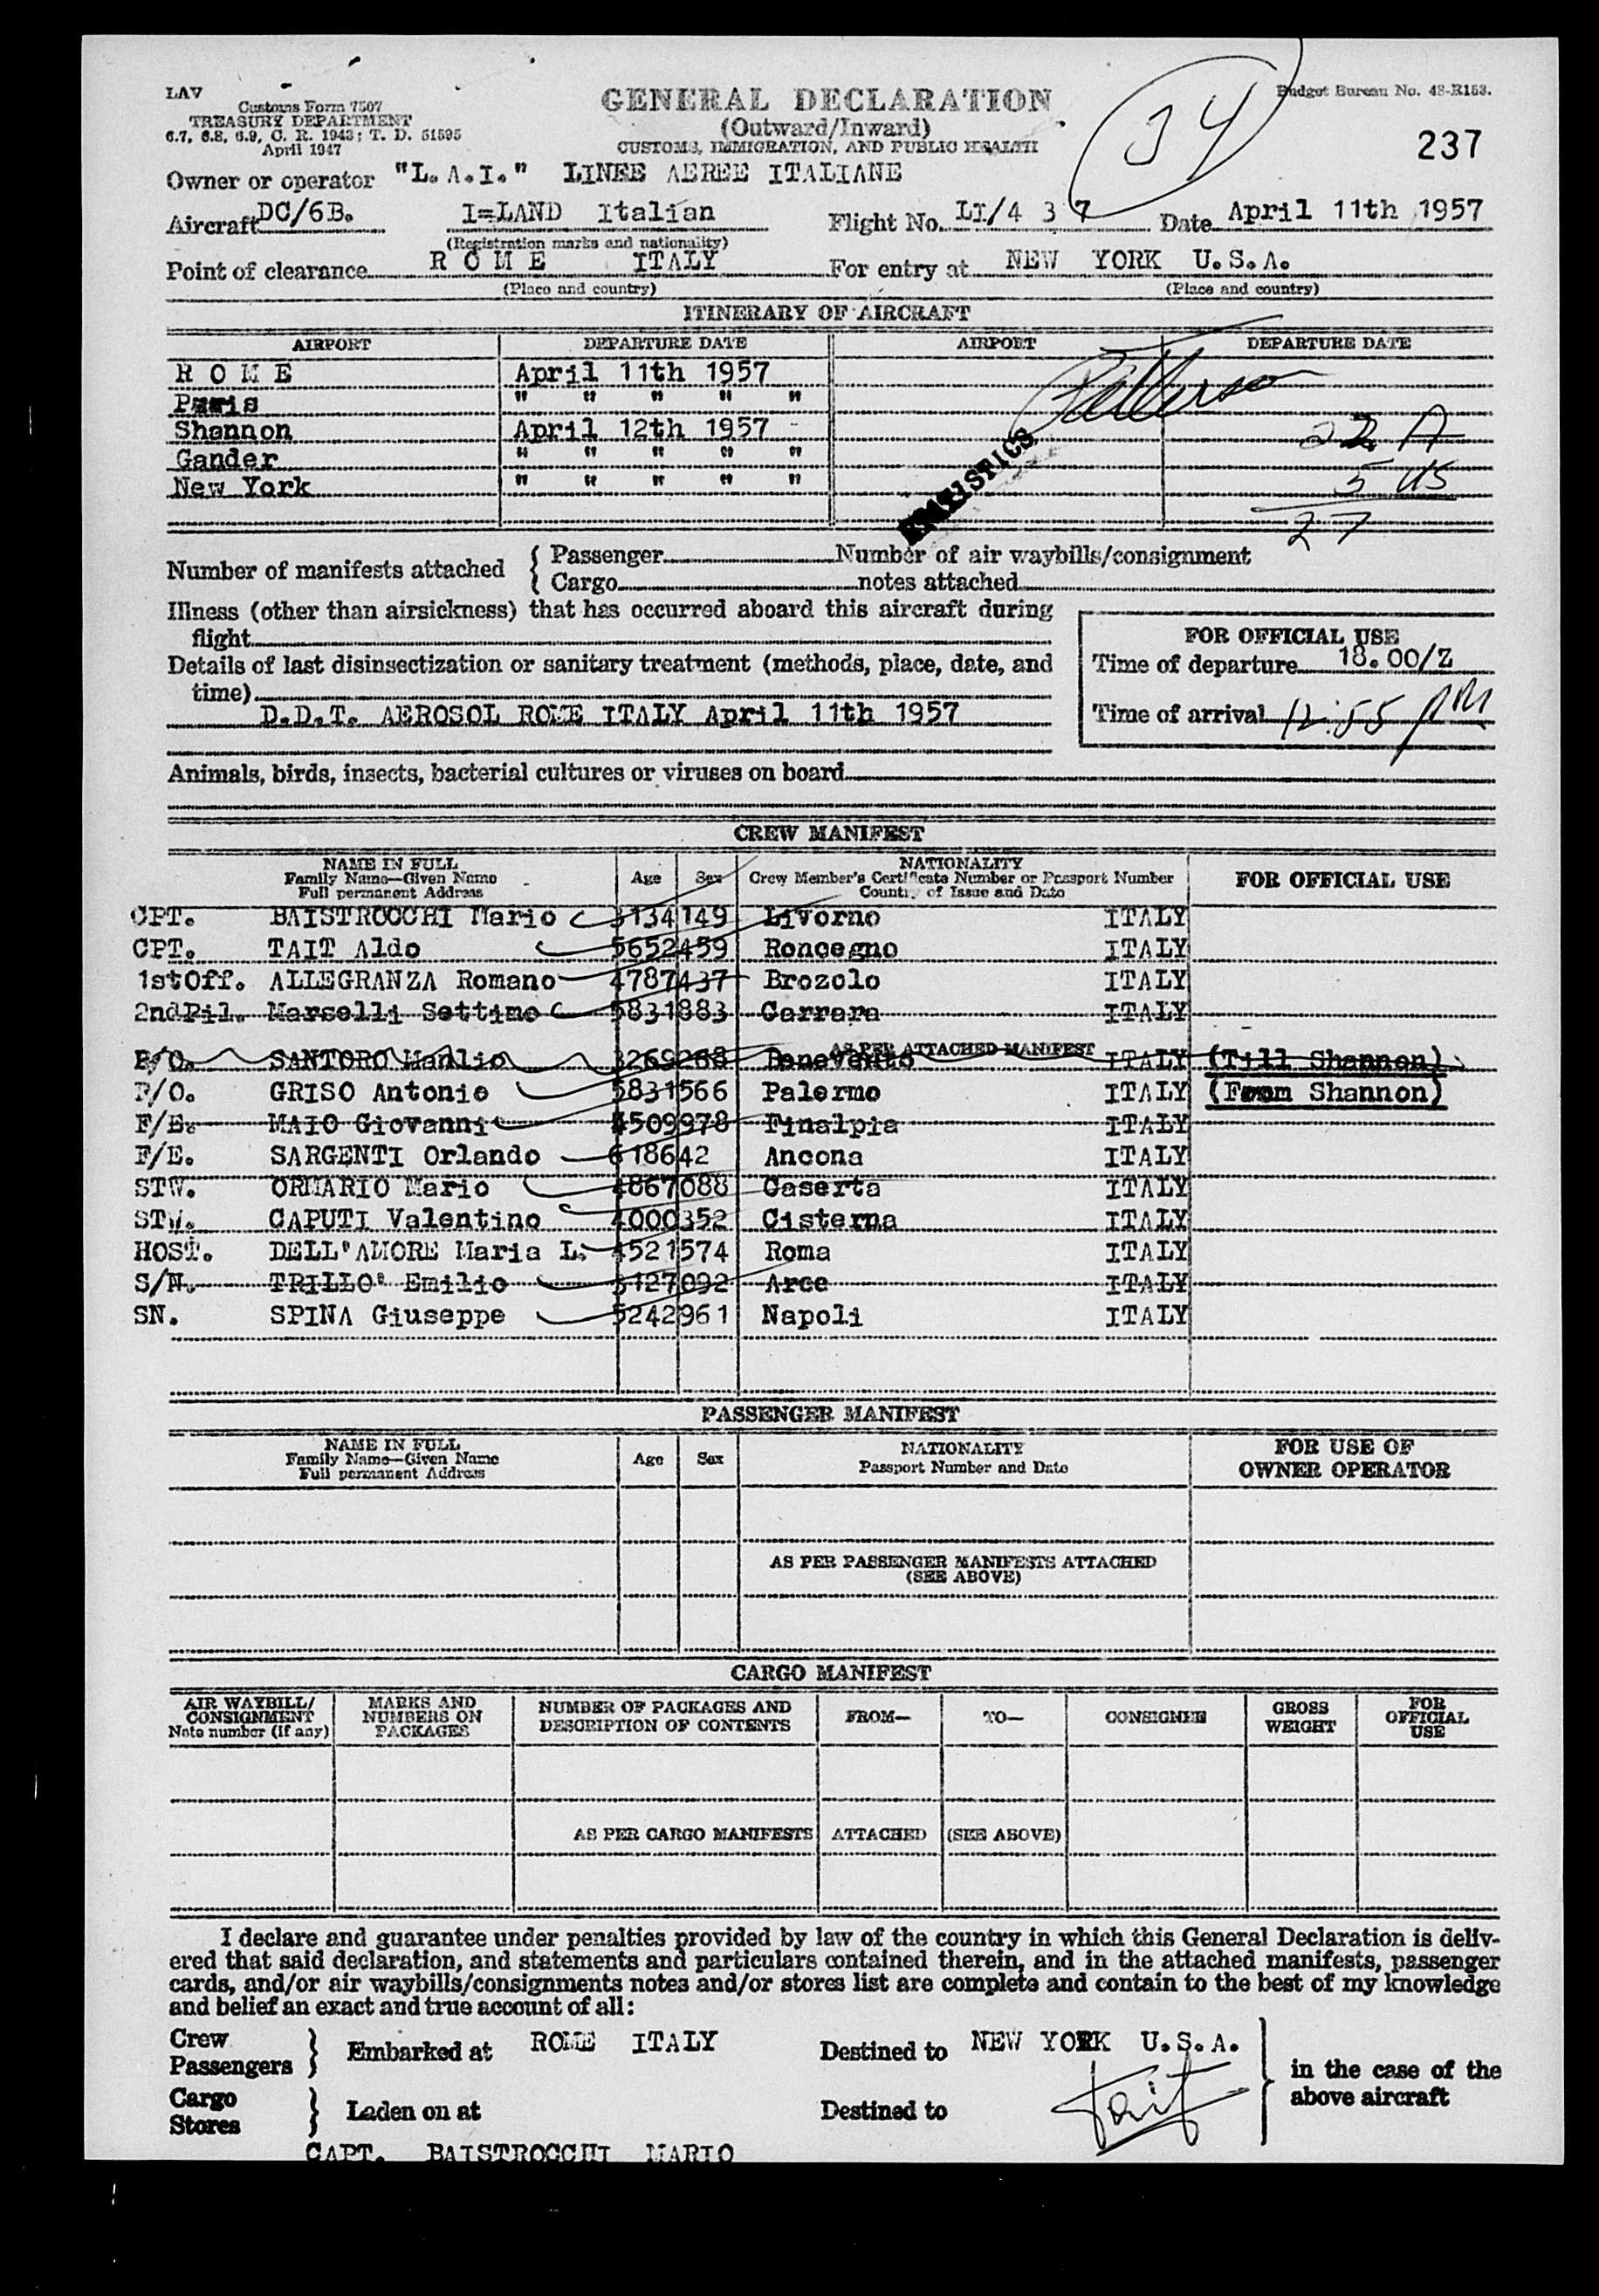 LAV
Customs Form 7507
TREASURY DEPARTMENT
6.7, 6.8, 6.9, C. R. 1943; T. D. 51595
April 1947
GENERAL DECLARATION
(Outward/Inward)
CUSTOMS, IMMIGRATION, AND PUBLIC HEALTH
34
Budget Bureau No. 48-R153.
237
Owner or operator "L.A.I." LINEE AEREE ITALIANE
Aircraft DC/6B. I=LAND Italian Flight No. LI/4 3 7 Date April 11th 1957
(Registration marks and nationality)
Point of clearance R O M E ITALY For entry at NEW YORK U.S.A.
(Place and country) (Place and country)
ITINERARY OF AIRCRAFT
AIRPORT DEPARTURE DATE AIRPORT DEPARTURE DATE
R O M E April 11th 1957
Paris " " " " "
Shannon April 12th 1957 22 A
Gander " " " " "
New York " " " " " 5 US
27
Number of manifests attached { Passenger Number of air waybills/consignment
{ Cargo notes attached
Illness (other than airsickness) that has occurred aboard this aircraft during
flight
Details of last disinsectization or sanitary treatment (methods, place, date, and
time)
D.D.T. AEROSOL ROME ITALY April 11th 1957
FOR OFFICIAL USE
Time of departure 18.00/Z
Time of arrival 12:55 PM
Animals, birds, insects, bacterial cultures or viruses on board
CREW MANIFEST
NAME IN FULL
Family Name—Given Name
Full permanent Address
Age Sex
NATIONALITY
Crew Member's Certificate Number or Passport Number
Country of Issue and Date
FOR OFFICIAL USE
CPT. BAISTROCCHI Mario 3134149 Livorno ITALY
CPT. TAIT Aldo 5652459 Roncegno ITALY
1stOff. ALLEGRANZA Romano 4787437 Brozolo ITALY
2ndPil. Marselli Settimo 5831883 Carrara ITALY
AS PER ATTACHED MANIFEST
R/O. SANTORO Manlio 3269268 Benevento ITALY (Till Shannon)
R/O. GRISO Antonio 5831566 Palermo ITALY (From Shannon)
F/E. MAIO Giovanni 4509978 Finalpia ITALY
F/E. SARGENTI Orlando 618642 Ancona ITALY
STW. ORMARIO Mario 4867088 Caserta ITALY
STW. CAPUTI Valentino 4000352 Cisterna ITALY
HOST. DELL'AMORE Maria L. 4521574 Roma ITALY
S/N. TRILLO' Emilio 3127092 Arce ITALY
SN. SPINA Giuseppe 5242961 Napoli ITALY
PASSENGER MANIFEST
NAME IN FULL
Family Name—Given Name
Full permanent Address
Age Sex
NATIONALITY
Passport Number and Date
FOR USE OF
OWNER OPERATOR
AS PER PASSENGER MANIFESTS ATTACHED
(SEE ABOVE)
CARGO MANIFEST
AIR WAYBILL/
CONSIGNMENT
Note number (if any)
MARKS AND
NUMBERS ON
PACKAGES
NUMBER OF PACKAGES AND
DESCRIPTION OF CONTENTS
FROM— TO— CONSIGNEE
GROSS
WEIGHT
FOR
OFFICIAL
USE
AS PER CARGO MANIFESTS ATTACHED (SEE ABOVE)
I declare and guarantee under penalties provided by law of the country in which this General Declaration is deliv-
ered that said declaration, and statements and particulars contained therein, and in the attached manifests, passenger
cards, and/or air waybills/consignments notes and/or stores list are complete and contain to the best of my knowledge
and belief an exact and true account of all:
Crew
Passengers } Embarked at ROME ITALY Destined to NEW YORK U.S.A.
in the case of the
above aircraft
Cargo
Stores } Laden on at Destined to
Tait
CAPT. BAISTROCCHI MARIO